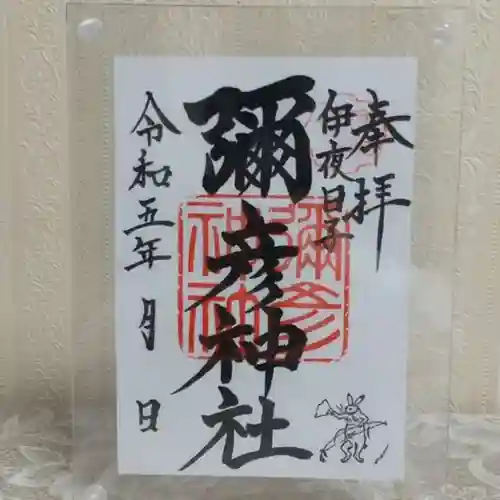 奉拝
伊夜日子
彌彦神社
彌彦
神社
令和五年 月 日